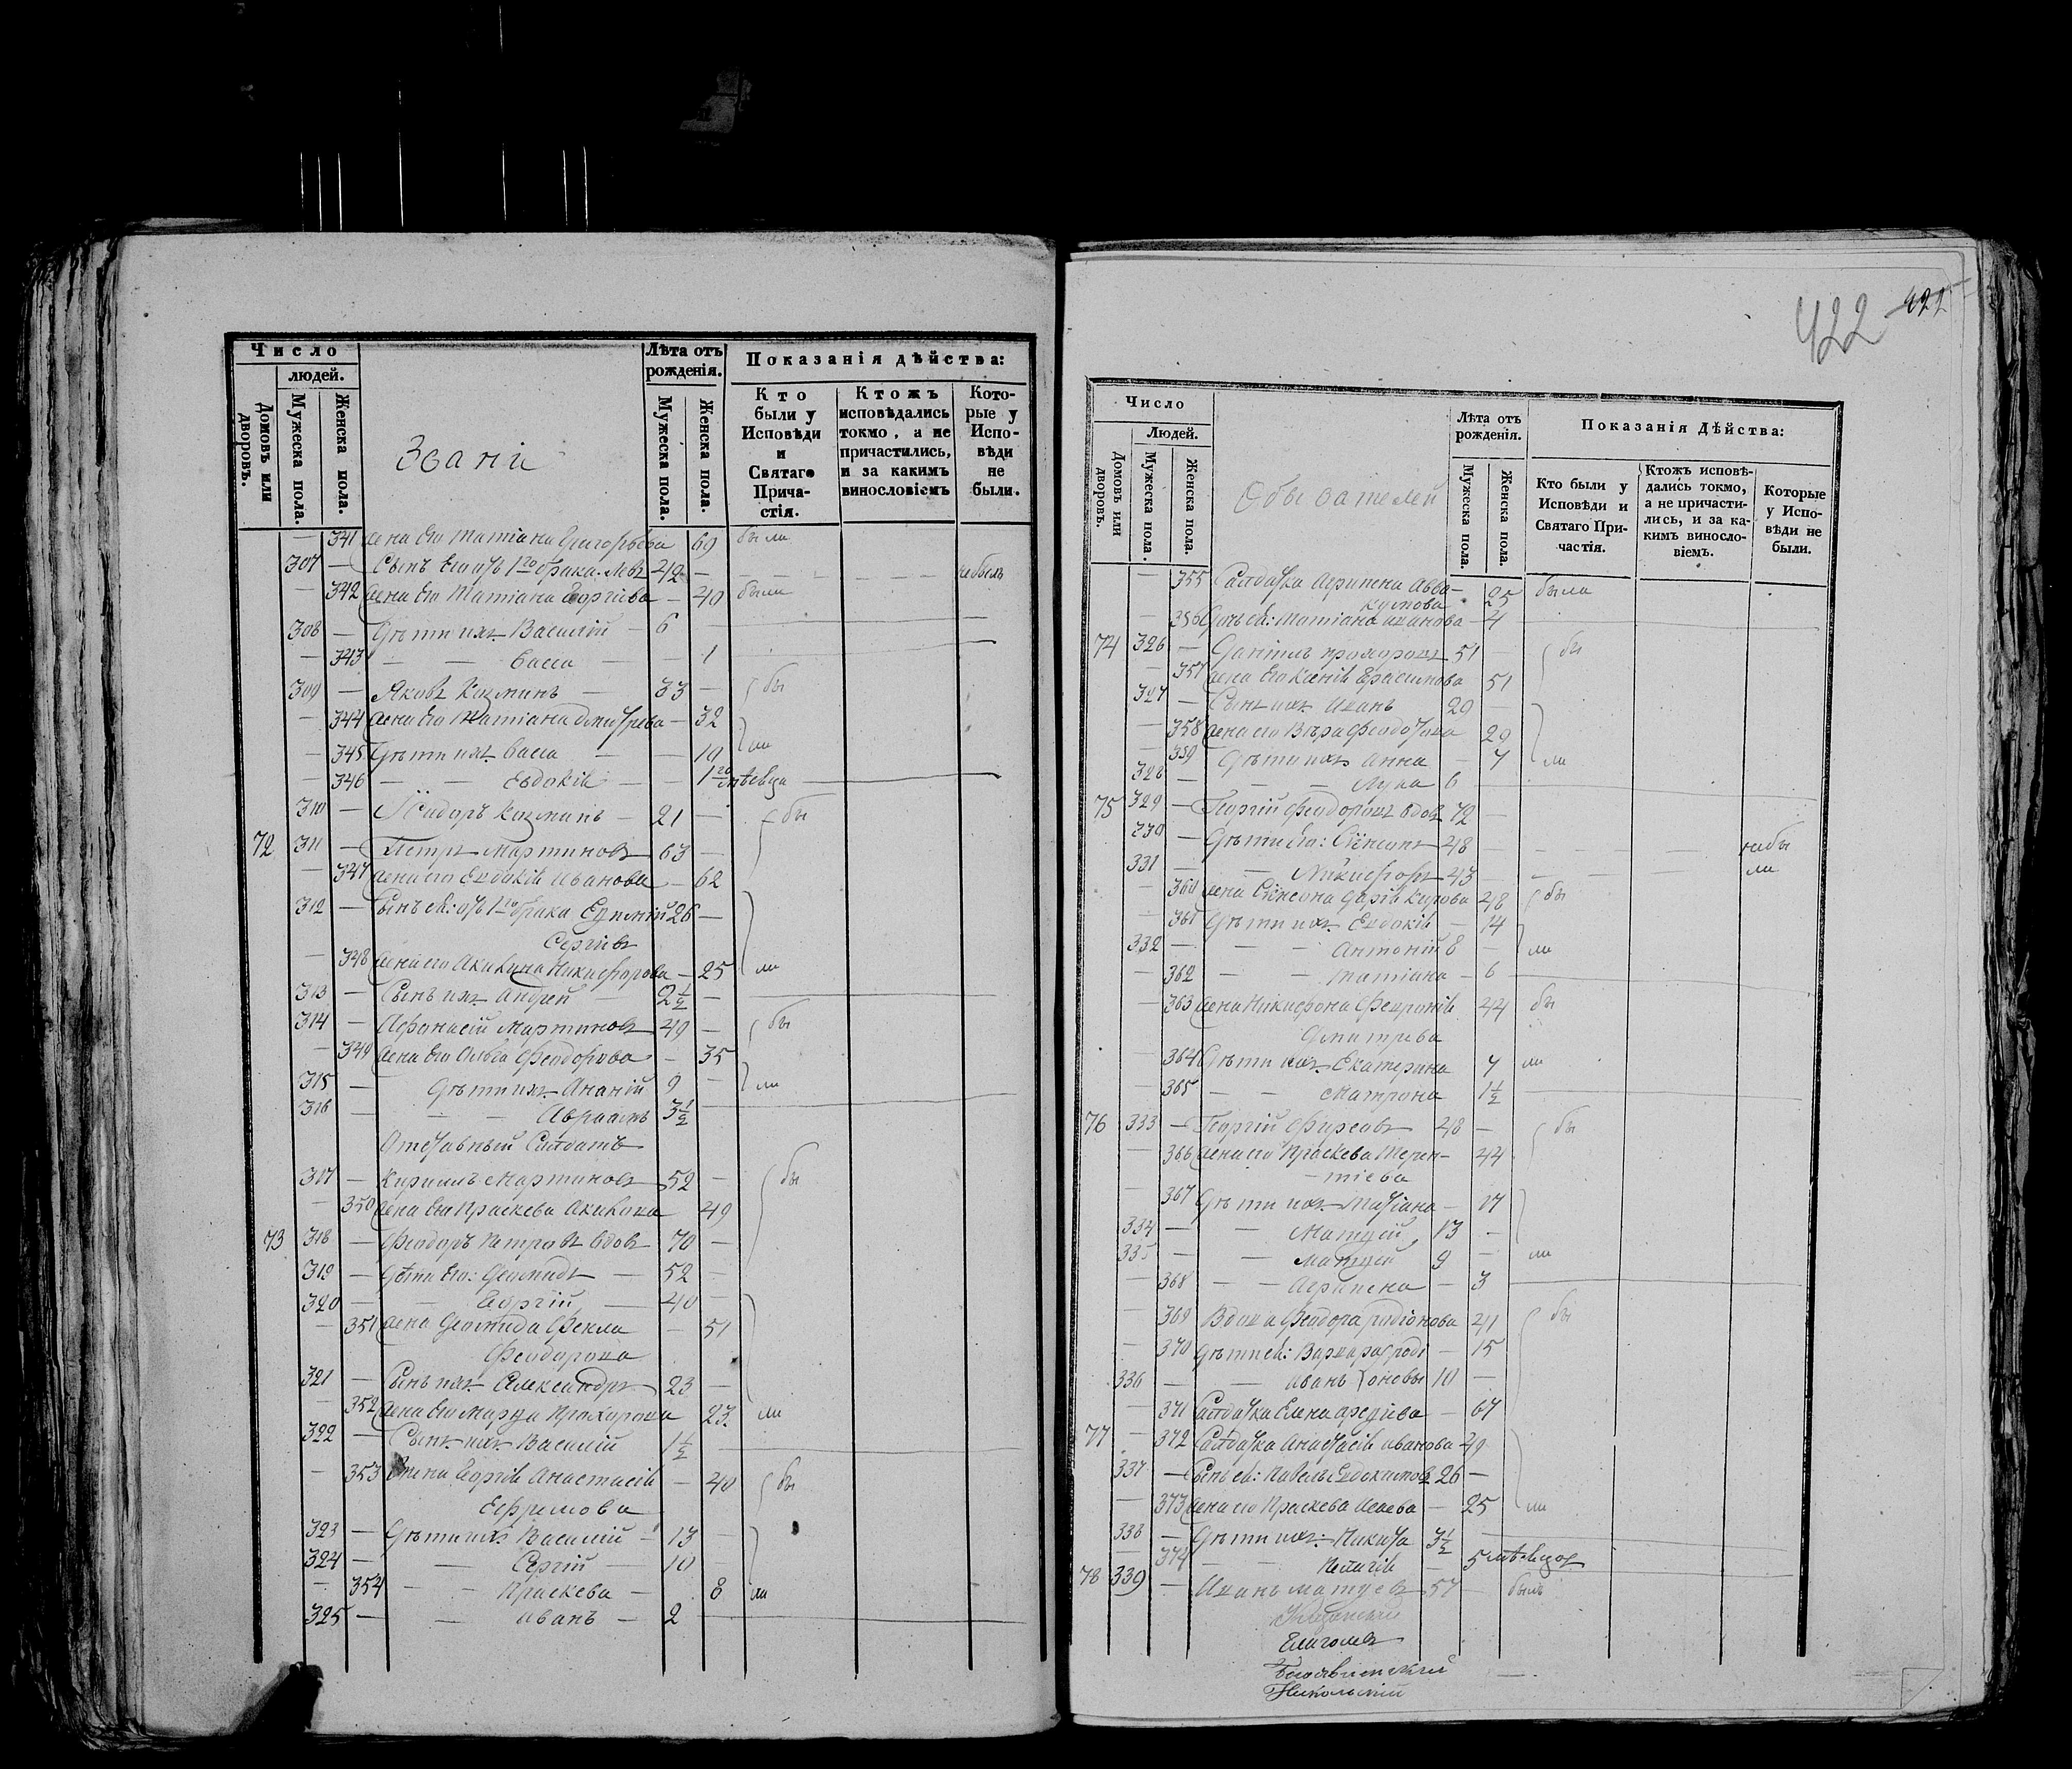 Число
людей.
Домовъ или дворовъ.
Мужеска пола.
Женска пола.
Званіи
Лѣта отъ рожденія.
Мужеска пола.
Женска пола.
Показанія дѣйства:
Кто были у Исповѣди и Святаго Причастія.
Ктожъ исповѣдались токмо, а не причастились, и за какимъ винословіемъ
Которые у Исповѣди не были.
— 341 жена его Татіана Григорьева 69 была
307 — Сынъ его отъ 1го брака Левъ 42 — не былъ
— 342 жена его Татіана Георгіева — 40 была
308 — Дѣти ихъ Василій — 6
— 343 — — Васса — — 1
309 — Яковъ Козминъ — 33 — бы
— 344 жена его Татіана Дмитрева — 32
— 345 Дѣти ихъ Васса — — 10 ли
— 346 — — Евдокія — — мѣсяца
310 — Исидоръ Козминъ — 21 — бы
72 311 — Петръ Мартиновъ 63 —
— 347 жена его Евдокія Иванова — 62
312 — Сынъ ея отъ 1го брака 26 —
Сергіевъ
— 348 жена его Акилина Никифорова — 25 ли
313 — Сынъ ихъ Андрей — 2½ —
314 — Афанасій Мартиновъ 49 — бы
— 349 жена его Феодорова — 35
315 — Дѣти ихъ Ананій 9 — ли
316 — — Авраамъ 3½
Отставный Салдатъ
317 — Кириллъ Мартиновъ 52 — бы
— 350 жена его Праскева 49
73 318 — Феодоръ Петровъ вдовъ 70 —
319 — Дѣти его: Деомидъ — 52 —
320 — — Георгій — 40 —
— 351 жена Деомида Фекла — 51
Феодорова
321 — Сынъ ихъ Александръ 23 —
— 352 жена его Марѳа Прохорова 23 ли
322 — Сынъ ихъ Василій 1½
— 353 жена Георгія Анастасія — 40 бы
Ефремова
323 — Дѣти ихъ Василій — 13 —
324 — — Сергій — 10 —
— 354 — — Праскева — 8 ли
325 — — Иванъ — 2
422 422
Число
Людей.
Домовъ или дворовъ.
Мужеска пола.
Женска пола.
Обывателей
Лѣта отъ рожденія.
Мужеска пола.
Женска пола.
Показанія Дѣйства:
Кто были у Исповѣди и Святаго Причастія.
Ктожъ исповѣдались токмо, а не причастились, и за какимъ винословіемъ.
Которые у Исповѣди не были.
— 355 Салдатка Агрипена Авва-
кумова 25 была
356 Дочь ея: Татіана Иванова — 4
74 326 — Даніилъ Прохоровъ 51 — бы
— 357 жена его Ксенія Герасимова 51
327 — Сынъ ихъ Иванъ 29 —
— 358 жена его Вѣра Феодотова 29
— 359 Дѣти ихъ Анна — 7 ли
328 — — Лука 6
75 329 — Георгій Феодоровъ вдовъ 72 —
330 — Дѣти его: Симеонъ 48 — небы
331 — — Никифоръ 43 — ли
— 360 жена Симеона Дарія Карпова 48 бы
— 361 Дѣти ихъ Евдокія — 14
332 — — Антоній 8 — ли
— 362 — — Татіана — 6
— 363 жена Никифора Февронія 44 бы
Дмитрева
— 364 Дѣти ихъ Екатерина 7 ли
— 365 — — Матрона 1½
76 333 — Георгій Фирсовъ 48 — бы
— 366 жена его Праскева Терен-
тіева 44
— 367 Дѣти ихъ Татіана — 17
334 — — Матѳей 13 —
335 — — Матѳей 9 — ли
— 368 — — Агрипена — 3
— 369 Вдова Феодора Родіонова 41 бы
— 370 Дѣти ея: Варвара Роді — 15
336 — — Иванъ оновы 10 —
— 371 Салдатка Елена — 67
77 — 372 Салдатка Анастасія Иванова 49
337 — Сынъ ея: Павелъ Евдокимовъ 26 —
— 373 жена его Праскева — 25 ли
338 — Дѣти ихъ: Никита 3½
374 — — Пелагія — 5 мѣсяцовъ
78 339 — Иванъ Матѳеевъ 57 былъ
Никольскій